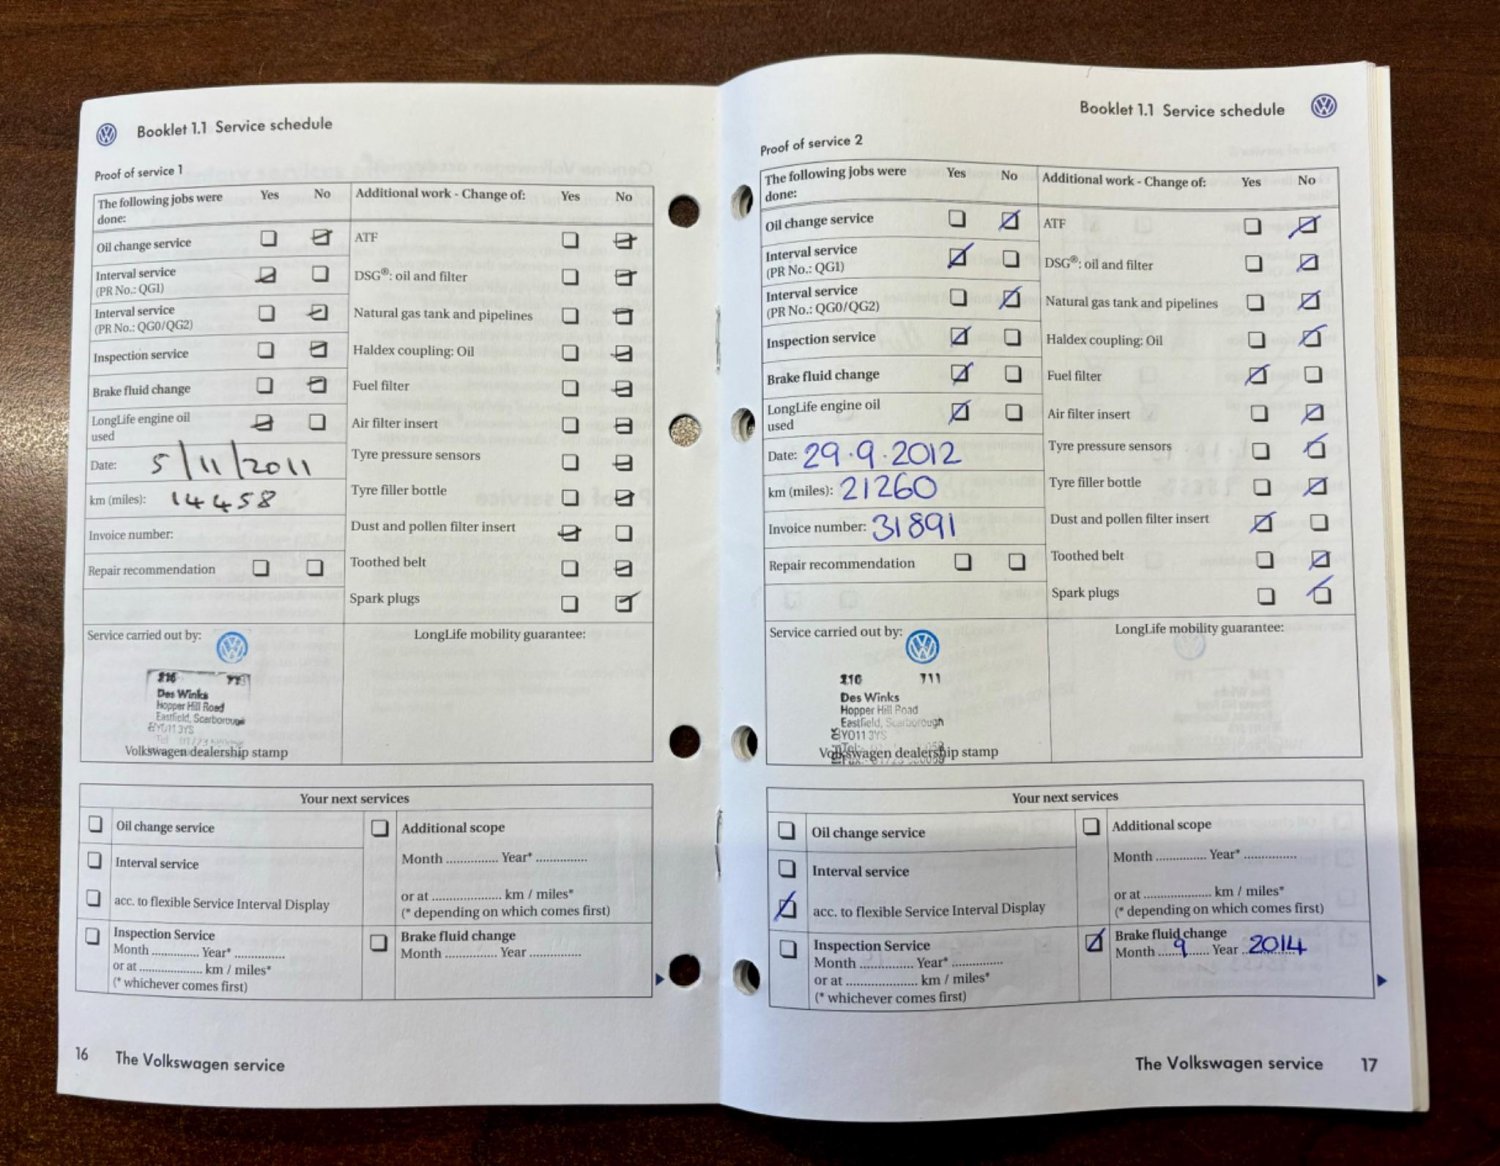 Booklet 1.1 Service schedule
Proof of service 1
The following jobs were done: Yes No Additional work - Change of: Yes No
Oil change service ATF
Interval service (PR No.: QG1) DSG®: oil and filter
Interval service (PR No.: QG0/QG2) Natural gas tank and pipelines
Inspection service Haldex coupling: Oil
Brake fluid change Fuel filter
LongLife engine oil used Air filter insert
Date: 5/11/2011 Tyre pressure sensors
km (miles): 14458 Tyre filler bottle
Invoice number: Dust and pollen filter insert
Repair recommendation Toothed belt
Spark plugs
Service carried out by: LongLife mobility guarantee:
216
Des Winks
Hopper Hill Road
Eastfield, Scarborough
YO11 3YS
Volkswagen dealership stamp
Your next services
Oil change service Additional scope
Interval service Month .............. Year* ..............
acc. to flexible Service Interval Display or at .................... km / miles*
(* depending on which comes first)
Inspection Service Brake fluid change
Month .............. Year* .............. Month .............. Year ..............
or at .................. km / miles*
(* whichever comes first)
16 The Volkswagen service
Booklet 1.1 Service schedule
Proof of service 2
The following jobs were done: Yes No Additional work - Change of: Yes No
Oil change service ATF
Interval service (PR No.: QG1) DSG®: oil and filter
Interval service (PR No.: QG0/QG2) Natural gas tank and pipelines
Inspection service Haldex coupling: Oil
Brake fluid change Fuel filter
LongLife engine oil used Air filter insert
Date: 29.9.2012 Tyre pressure sensors
km (miles): 21260 Tyre filler bottle
Invoice number: 31891 Dust and pollen filter insert
Repair recommendation Toothed belt
Spark plugs
Service carried out by: LongLife mobility guarantee:
216 711
Des Winks
Hopper Hill Road
Eastfield, Scarborough
YO11 3YS
Volkswagen dealership stamp
Your next services
Oil change service Additional scope
Interval service Month .............. Year* ..............
acc. to flexible Service Interval Display or at .................... km / miles*
(* depending on which comes first)
Inspection Service Brake fluid change
Month .............. Year* .............. Month 9 Year 2014
or at .................. km / miles*
(* whichever comes first)
The Volkswagen service 17